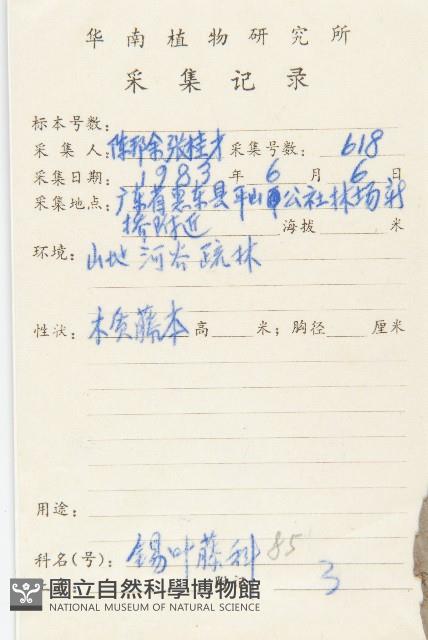 华南植物研究所
采集记录
标本号数：
采集人：陈邦余张桂才 采集号数：618
采集日期：1983年6月6日
采集地点：广东省惠东县平山公社林场新
桥附近 海拔 米
环境：山地河谷疏林
性状：木质藤本 高 米；胸径 厘米
用途：
科名(号)：锡叶藤科 85
3
國立自然科學博物館
NATIONAL MUSEUM OF NATURAL SCIENCE